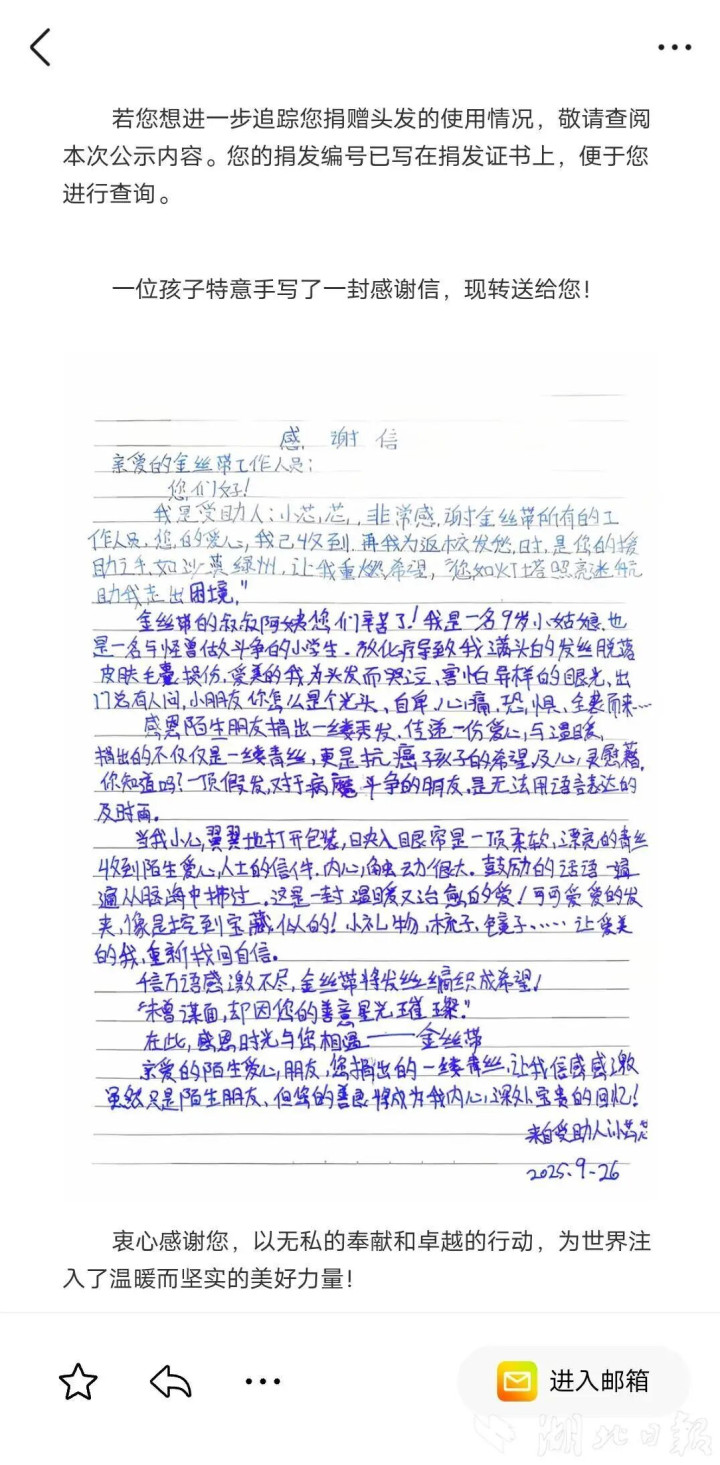 若您想进一步追踪您捐赠头发的使用情况，敬请查阅
本次公示内容。您的捐发编号已写在捐发证书上，便于您
进行查询。
一位孩子特意手写了一封感谢信，现转送给您！
感谢信
亲爱的金丝带工作人员：
您们好！
我是受助人：小芯芯，非常感谢金丝带所有的工
作人员，您的爱心，我已收到，再我为返校发愁时，是您的援
助之手，如沙漠绿州，让我重燃希望，“您如灯塔照亮迷航
助我走出困境，”
金丝带的叔叔阿姨您们辛苦了！我是一名9岁小姑娘，也
是一名与怪兽做斗争的小学生。放化疗导致我满头的发丝脱落
皮肤毛囊损伤，爱美的我为头发而哭泣、害怕异样的眼光、出
门总有人问，小朋友你怎么是个光头、自卑、心痛、恐惧、全袭而来…
感恩陌生朋友捐出一缕秀发、传递一份爱心，与温暖，
捐出的不仅仅是一缕青丝，更是抗癌子孩子的希望及心灵慰藉，
你知道吗？一顶假发，对于病魔斗争的朋友，是无法用语言表达的
及时雨。
当我小心翼翼地打开包装，映入眼帘是一顶柔软，漂亮的青丝
收到陌生爱心人士的信件，内心触动很大。鼓励的话语一遍
遍从脑海中拂过，这是一封温暖又治愈的爱！可可爱爱的发
夹，像是挖到宝藏似的！小礼物，梳子、镜子、……让爱美
的我，重新找回自信。
信万语感激不尽，金丝带将发丝编织成希望！
“未曾谋面，却因您的善意星光璀璨。”
在此，感恩时光与您相遇——金丝带
亲爱的陌生爱心朋友，您捐出的一缕青丝，让我倍感感激
虽然只是陌生朋友、但您的善意将成为我内心深处宝贵的回忆！
来自受助人：小芯芯
2025.9-26
衷心感谢您，以无私的奉献和卓越的行动，为世界注
入了温暖而坚实的美好力量！
进入邮箱
湖北日报